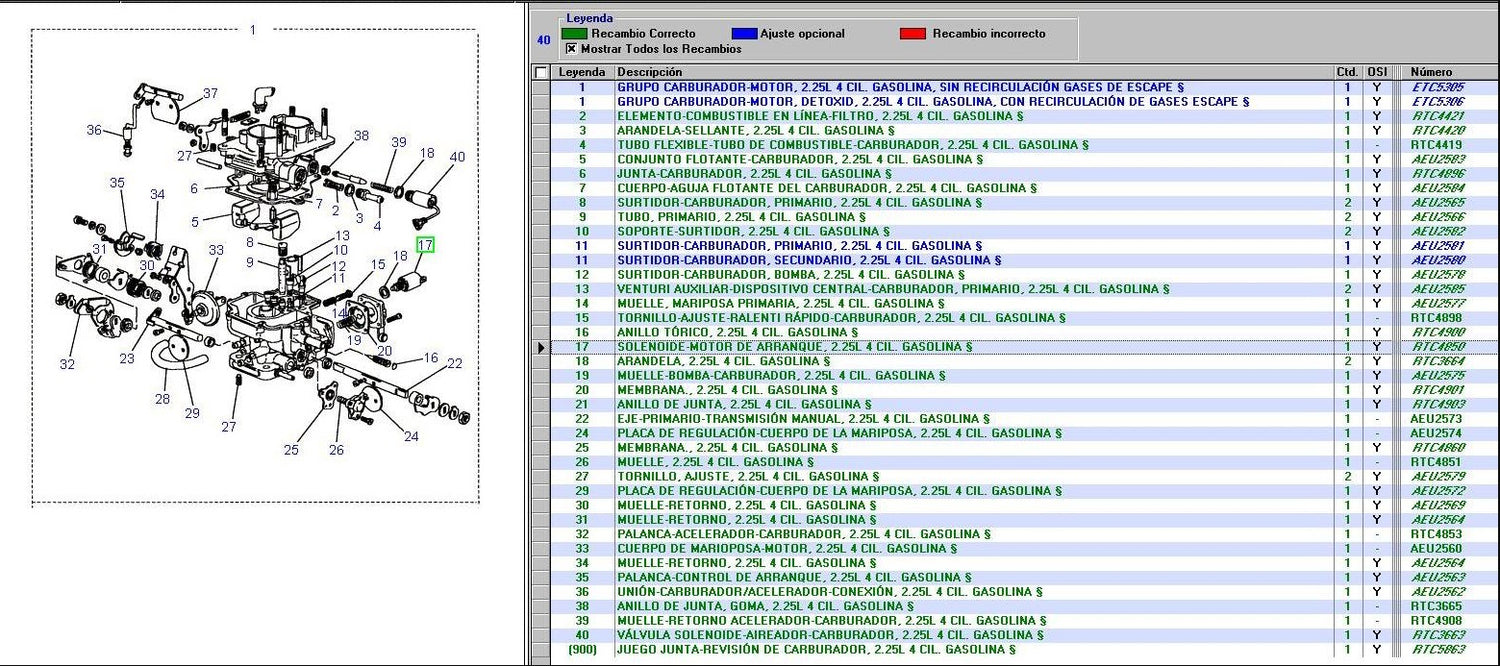 1
37
36
38
39
18
40
27
35
34
6
7
2
3
4
5
17
8
13
10
9
12
11
31
30
33
15
18
14
32
23
19
20
16
22
28
29
27
25
26
24
40
Leyenda
Recambio Correcto Ajuste opcional Recambio incorrecto
Mostrar Todos los Recambios
Leyenda Descripción Ctd. OSI Número
1 GRUPO CARBURADOR-MOTOR, 2.25L 4 CIL. GASOLINA, SIN RECIRCULACIÓN GASES DE ESCAPE § 1 Y ETC5305
1 GRUPO CARBURADOR-MOTOR, DETOXID, 2.25L 4 CIL. GASOLINA, CON RECIRCULACIÓN DE GASES ESCAPE § 1 Y ETC5306
2 ELEMENTO-COMBUSTIBLE EN LÍNEA-FILTRO, 2.25L 4 CIL. GASOLINA § 1 Y RTC4421
3 ARANDELA-SELLANTE, 2.25L 4 CIL. GASOLINA § 1 Y RTC4420
4 TUBO FLEXIBLE-TUBO DE COMBUSTIBLE-CARBURADOR, 2.25L 4 CIL. GASOLINA § 1 - RTC4419
5 CONJUNTO FLOTANTE-CARBURADOR, 2.25L 4 CIL. GASOLINA § 1 Y AEU2583
6 JUNTA-CARBURADOR, 2.25L 4 CIL. GASOLINA § 1 Y RTC4896
7 CUERPO-AGUJA FLOTANTE DEL CARBURADOR, 2.25L 4 CIL. GASOLINA § 1 Y AEU2584
8 SURTIDOR-CARBURADOR, PRIMARIO, 2.25L 4 CIL. GASOLINA § 2 Y AEU2565
9 TUBO, PRIMARIO, 2.25L 4 CIL. GASOLINA § 2 Y AEU2566
10 SOPORTE-SURTIDOR, 2.25L 4 CIL. GASOLINA § 2 Y AEU2582
11 SURTIDOR-CARBURADOR, PRIMARIO, 2.25L 4 CIL. GASOLINA § 1 Y AEU2581
11 SURTIDOR-CARBURADOR, SECUNDARIO, 2.25L 4 CIL. GASOLINA § 1 Y AEU2580
12 SURTIDOR-CARBURADOR, BOMBA, 2.25L 4 CIL. GASOLINA § 1 Y AEU2578
13 VENTURI AUXILIAR-DISPOSITIVO CENTRAL-CARBURADOR, PRIMARIO, 2.25L 4 CIL. GASOLINA § 2 Y AEU2585
14 MUELLE, MARIPOSA PRIMARIA, 2.25L 4 CIL. GASOLINA § 1 Y AEU2577
15 TORNILLO-AJUSTE-RALENTI RÁPIDO-CARBURADOR, 2.25L 4 CIL. GASOLINA § 1 - RTC4898
16 ANILLO TÓRICO, 2.25L 4 CIL. GASOLINA § 1 Y RTC4900
17 SOLENOIDE-MOTOR DE ARRANQUE, 2.25L 4 CIL. GASOLINA § 1 Y RTC4850
18 ARANDELA, 2.25L 4 CIL. GASOLINA § 2 Y RTC3664
19 MUELLE-BOMBA-CARBURADOR, 2.25L 4 CIL. GASOLINA § 1 Y AEU2575
20 MEMBRANA., 2.25L 4 CIL. GASOLINA § 1 Y RTC4901
21 ANILLO DE JUNTA, 2.25L 4 CIL. GASOLINA § 1 Y RTC4903
22 EJE-PRIMARIO-TRANSMISIÓN MANUAL, 2.25L 4 CIL. GASOLINA § 1 - AEU2573
24 PLACA DE REGULACIÓN-CUERPO DE LA MARIPOSA, 2.25L 4 CIL. GASOLINA § 1 - AEU2574
25 MEMBRANA., 2.25L 4 CIL. GASOLINA § 1 Y RTC4860
26 MUELLE, 2.25L 4 CIL. GASOLINA § 1 - RTC4851
27 TORNILLO, AJUSTE, 2.25L 4 CIL. GASOLINA § 2 Y AEU2579
29 PLACA DE REGULACIÓN-CUERPO DE LA MARIPOSA, 2.25L 4 CIL. GASOLINA § 1 Y AEU2572
30 MUELLE-RETORNO, 2.25L 4 CIL. GASOLINA § 1 Y AEU2569
31 MUELLE-RETORNO, 2.25L 4 CIL. GASOLINA § 1 Y AEU2564
32 PALANCA-ACELERADOR-CARBURADOR, 2.25L 4 CIL. GASOLINA § 1 - RTC4853
33 CUERPO DE MARIOPOSA-MOTOR, 2.25L 4 CIL. GASOLINA § 1 - AEU2560
34 MUELLE-RETORNO, 2.25L 4 CIL. GASOLINA § 1 Y AEU2564
35 PALANCA-CONTROL DE ARRANQUE, 2.25L 4 CIL. GASOLINA § 1 Y AEU2563
36 UNIÓN-CARBURADOR/ACELERADOR-CONEXIÓN, 2.25L 4 CIL. GASOLINA § 1 Y AEU2562
38 ANILLO DE JUNTA, GOMA, 2.25L 4 CIL. GASOLINA § 1 - RTC3665
39 MUELLE-RETORNO ACELERADOR-CARBURADOR, 2.25L 4 CIL. GASOLINA § 1 - RTC4908
40 VÁLVULA SOLENOIDE-AIREADOR-CARBURADOR, 2.25L 4 CIL. GASOLINA § 1 Y RTC3663
(900) JUEGO JUNTA-REVISIÓN DE CARBURADOR, 2.25L 4 CIL. GASOLINA § 1 Y RTC5863